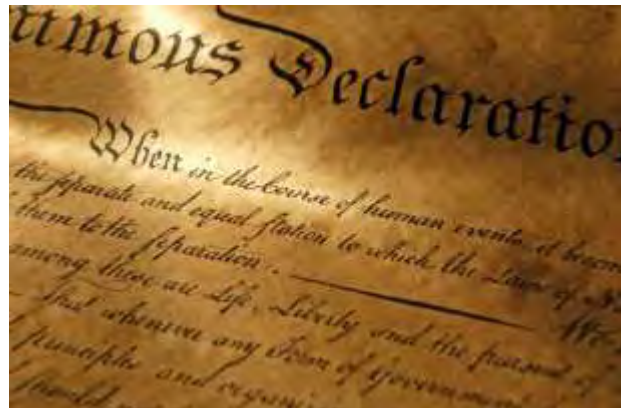 nimous Declaration
When in the Course of human events, it becom
the separate and equal station to which the Laws of N
them to the separation. We
among these are Life, Liberty and the pursuit of
— That whenever any Form of Government
principles and organi
should